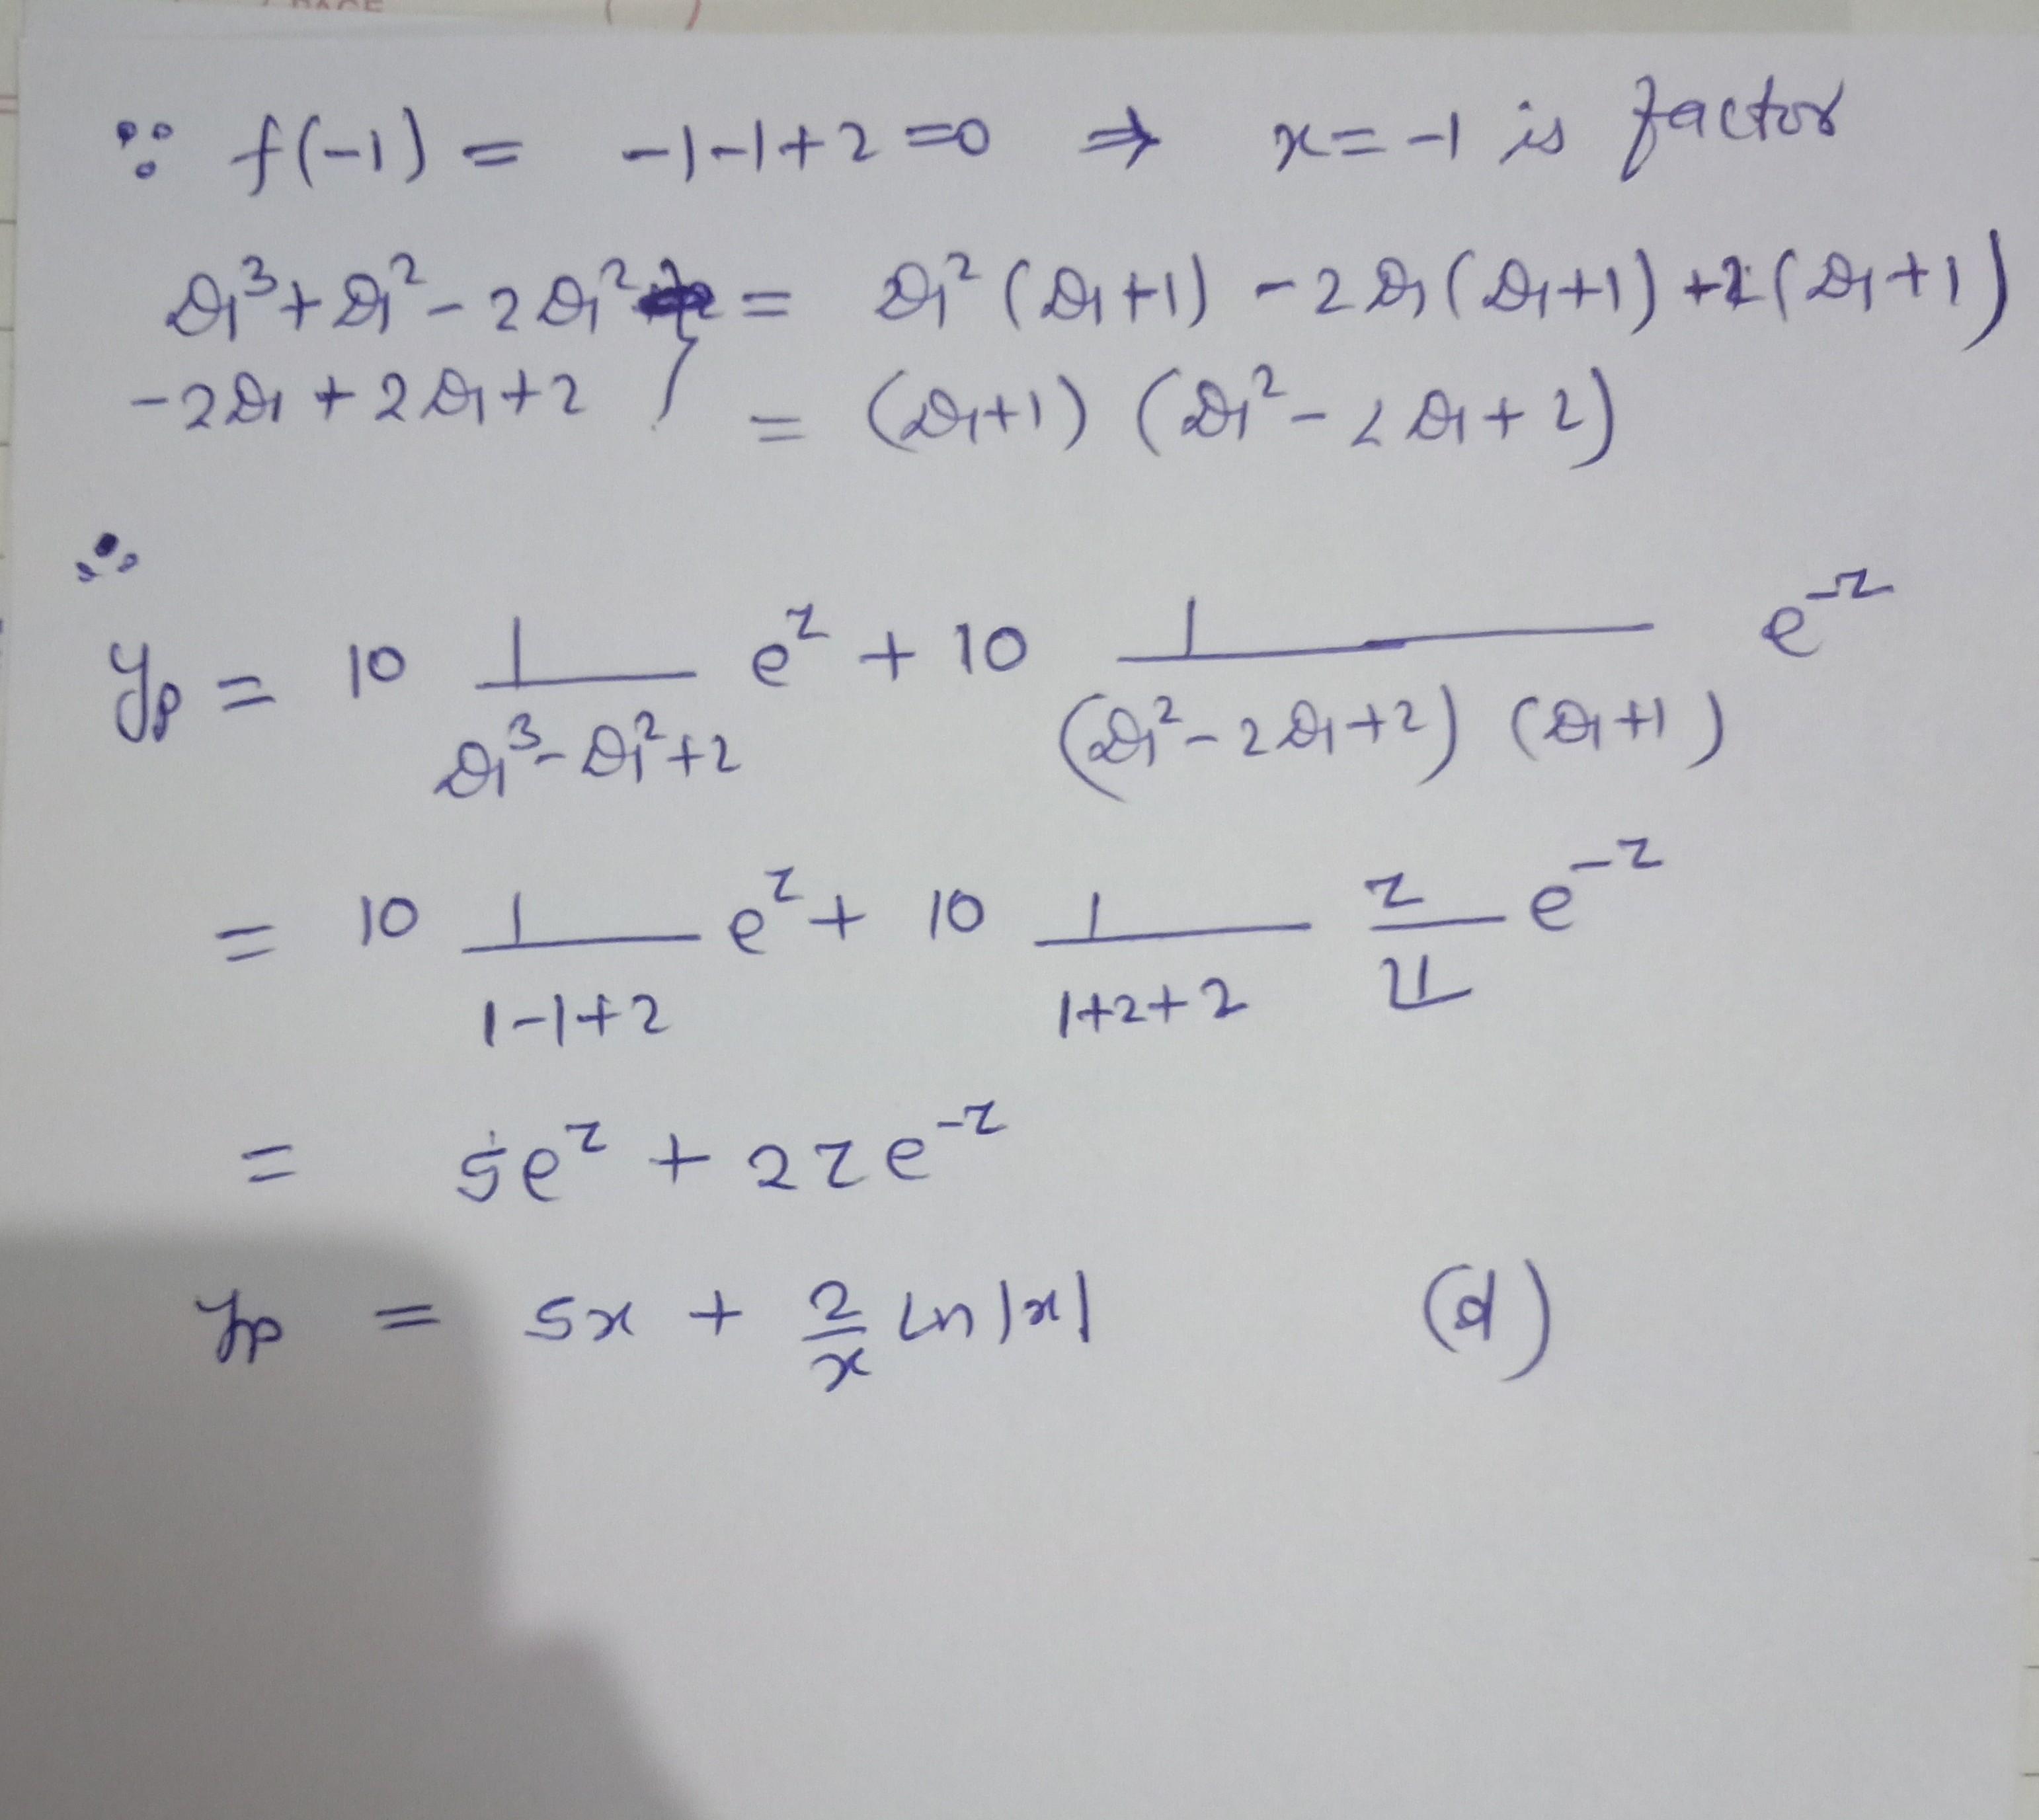 ∵ f(-1) = -1-1+2 =0 ⇒ x=-1 is factor
D₁³+D₁²-2D₁² = D₁²(D₁+1) -2D₁(D₁+1)+2(D₁+1)
-2D₁+2D₁+2 } = (D₁+1) (D₁²-2D₁+2)
∴
yp = 10 1/(D₁³-D₁²+2) e^z + 10 1/((D₁²-2D₁+2) (D₁+1)) e^-z
= 10 1/(1-1+2) e^z + 10 1/(1+2+2) z/1! e^-z
= 5e^z + 2ze^-z
yp = 5x + 2/x ln|x| (d)